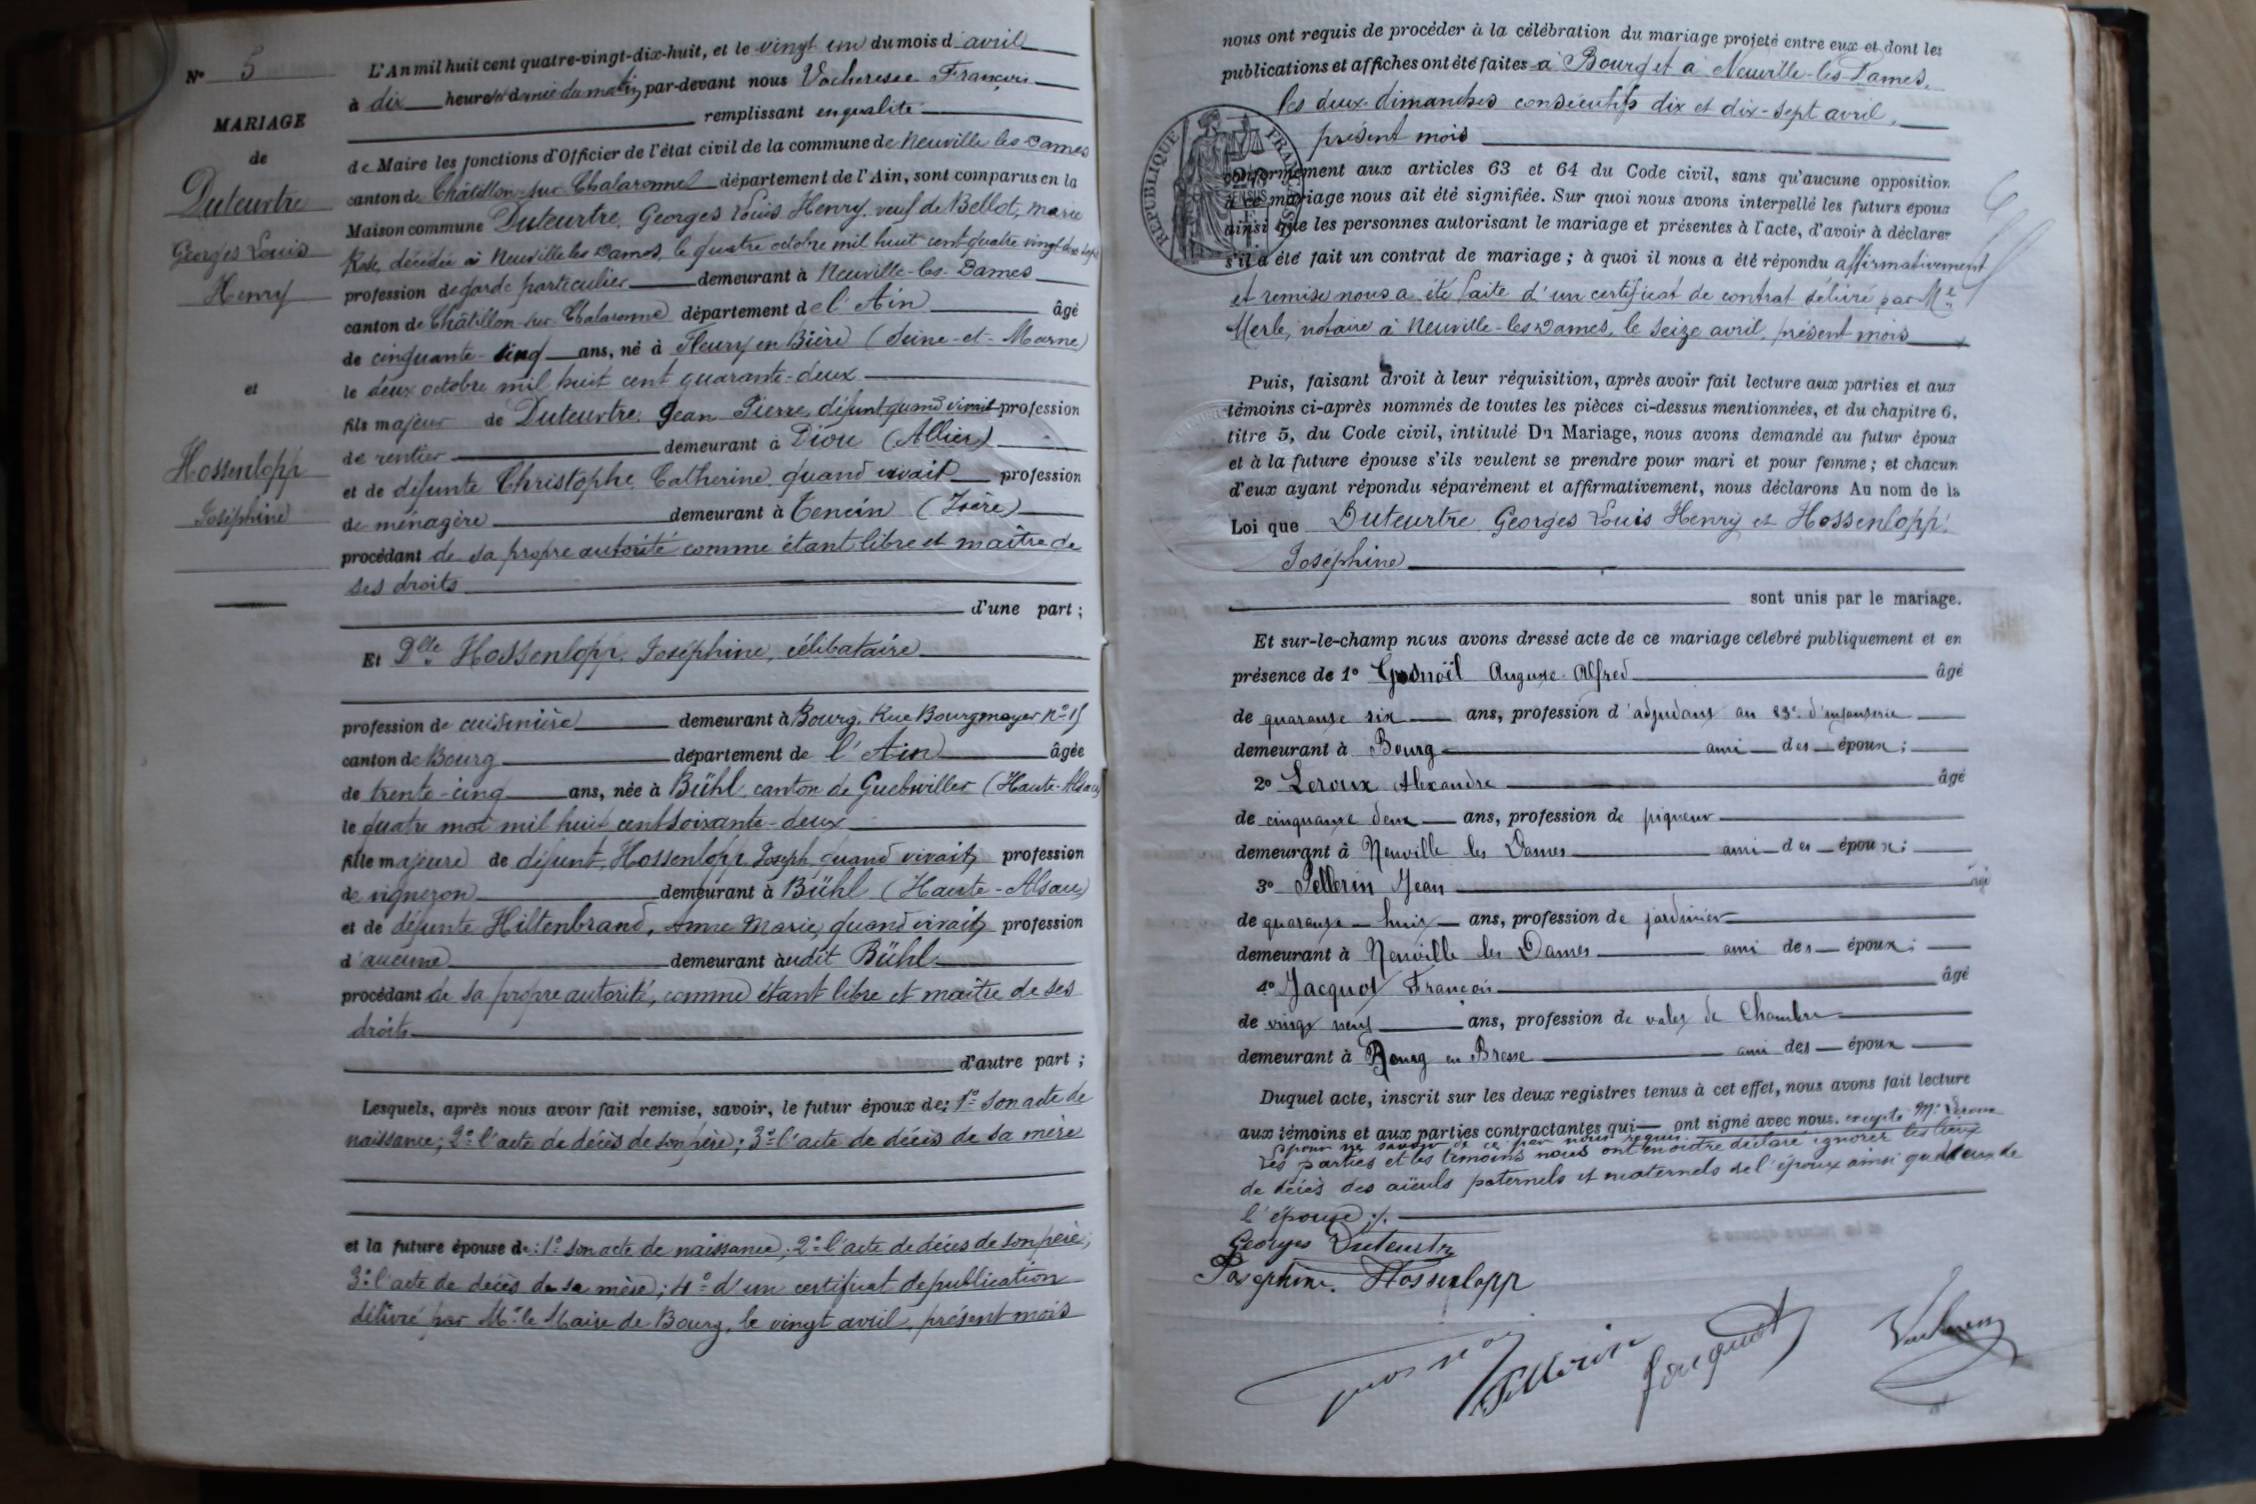 N° 5
MARIAGE
de
Duteurtre
Georges Louis
Henry
et
Hossenlopp
Joséphine
L'An mil huit cent quatre-vingt-dix-huit, et le vingt un du mois d'avril
à dix heures et demie du matin, par-devant nous Vacheresse François
remplissant en qualité
de Maire les fonctions d'Officier de l'état civil de la commune de Neuville les Dames
canton de Châtillon-sur-Chalaronne département de l'Ain, sont comparus en la
Maison commune Duteurtre, Georges Louis Henry, veuf de Bellot, Marie
Rose, décédée à Neuville les Dames, le quatre octobre mil huit cent quatre vingt dix sept
profession de garde particulier demeurant à Neuville-les-Dames
canton de Châtillon-sur-Chalaronne département de l'Ain âgé
de cinquante-cinq ans, né à Fleury en Bière (Seine-et-Marne)
le deux octobre mil huit cent quarante-deux
fils majeur de Duteurtre, Jean Pierre, défunt quand vivait profession
de rentier demeurant à Diou (Allier)
et de défunte Christophe Catherine, quand vivait profession
de ménagère demeurant à Tencin (Isère)
procédant de sa propre autorité comme étant libre et maître de
ses droits
d'une part ;
Et Dlle Hossenlopp, Joséphine, célibataire
profession de cuisinière demeurant à Bourg, Rue Bourgmayer n° 15
canton de Bourg département de l'Ain âgée
de trente-cinq ans, née à Bühl, canton de Guebwiller (Haute-Alsace)
le quatre mai mil huit cent soixante-deux
fille majeure de défunt, Hossenlopp Joseph, quand vivait, profession
de vigneron demeurant à Bühl (Haute-Alsace)
et de défunte Hiltenbrand, Anne Marie, quand vivait, profession
d'aucune demeurant audit Bühl
procédant de sa propre autorité, comme étant libre et maître de ses
droits
d'autre part ;
Lesquels, après nous avoir fait remise, savoir, le futur époux de: 1° son acte de
naissance; 2° l'acte de décès de son père; 3° l'acte de décès de sa mère
et la future épouse de: 1° son acte de naissance; 2° l'acte de décès de son père;
3° l'acte de décès de sa mère; 4° d'un certificat de publication
délivré par Mr le Maire de Bourg, le vingt avril, présent mois
nous ont requis de procéder à la célébration du mariage projeté entre eux et dont les
publications et affiches ont été faites à Bourg et à Neuville-les-Dames,
les deux dimanches consécutifs dix et dix-sept avril,
présent mois
RÉPUBLIQUE FRANÇAISE
conformément aux articles 63 et 64 du Code civil, sans qu'aucune opposition
à ce mariage nous ait été signifiée. Sur quoi nous avons interpellé les futurs époux
ainsi que les personnes autorisant le mariage et présentes à l'acte, d'avoir à déclarer
s'il a été fait un contrat de mariage ; à quoi il nous a été répondu affirmativement
et remise nous a été faite d'un certificat de contrat délivré par Me
Merle, notaire à Neuville-les-Dames, le seize avril, présent mois
Puis, faisant droit à leur réquisition, après avoir fait lecture aux parties et aux
témoins ci-après nommés de toutes les pièces ci-dessus mentionnées, et du chapitre 6,
titre 5, du Code civil, intitulé Du Mariage, nous avons demandé au futur époux
et à la future épouse s'ils veulent se prendre pour mari et pour femme ; et chacun
d'eux ayant répondu séparément et affirmativement, nous déclarons Au nom de la
Loi que Duteurtre Georges Louis Henry et Hossenlopp,
Joséphine
sont unis par le mariage.
Et sur-le-champ nous avons dressé acte de ce mariage célébré publiquement et en
présence de 1° Auguste Alfred âgé
de quarante six ans, profession d'adjudant au 23e d'infanterie
demeurant à Bourg ami des époux ;
2° Leroux Alexandre âgé
de cinquante deux ans, profession de piqueur
demeurant à Neuville les Dames ami des époux ;
3° Pellerin Jean âgé
de quarante-huit ans, profession de jardinier
demeurant à Neuville les Dames ami des époux ;
4° Jacquot François âgé
de vingt neuf ans, profession de valet de Chambre
demeurant à Bourg en Bresse ami des époux
Duquel acte, inscrit sur les deux registres tenus à cet effet, nous avons fait lecture
aux témoins et aux parties contractantes qui ont signé avec nous, excepté Mr Leroux
pour ne savoir de ce par nous requis.
Les parties et les témoins nous ont en outre déclaré ignorer les lieux
de décès des aïeuls paternels et maternels de l'époux ainsi que ceux de
l'épouse ;/.
Georges Duteurtre
Joséphine Hossenlopp
Pellerin
Jacquot